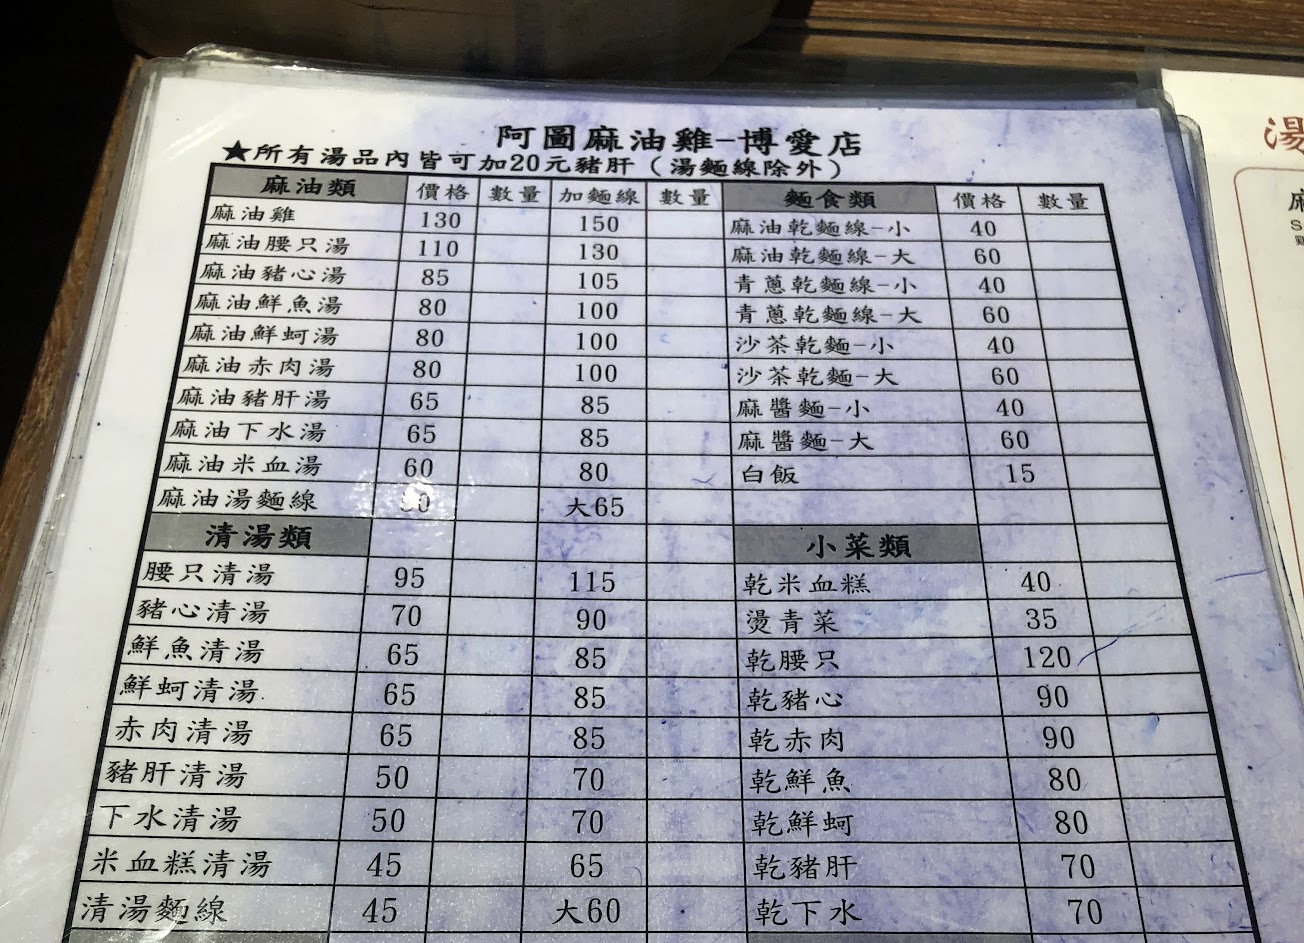 阿圖麻油雞-博愛店
★所有湯品內皆可加20元豬肝（湯麵線除外）
麻油類 價格 數量 加麵線 數量 麵食類 價格 數量
麻油雞 130 150 麻油乾麵線-小 40
麻油腰只湯 110 130 麻油乾麵線-大 60
麻油豬心湯 85 105 青蔥乾麵線-小 40
麻油鮮魚湯 80 100 青蔥乾麵線-大 60
麻油鮮蚵湯 80 100 沙茶乾麵-小 40
麻油赤肉湯 80 100 沙茶乾麵-大 60
麻油豬肝湯 65 85 麻醬麵-小 40
麻油下水湯 65 85 麻醬麵-大 60
麻油米血湯 60 80 白飯 15
麻油湯麵線 大65
清湯類 小菜類
腰只清湯 95 115 乾米血糕 40
豬心清湯 70 90 燙青菜 35
鮮魚清湯 65 85 乾腰只 120
鮮蚵清湯 65 85 乾豬心 90
赤肉清湯 65 85 乾赤肉 90
豬肝清湯 50 70 乾鮮魚 80
下水清湯 50 70 乾鮮蚵 80
米血糕清湯 45 65 乾豬肝 70
清湯麵線 45 大60 乾下水 70
湯